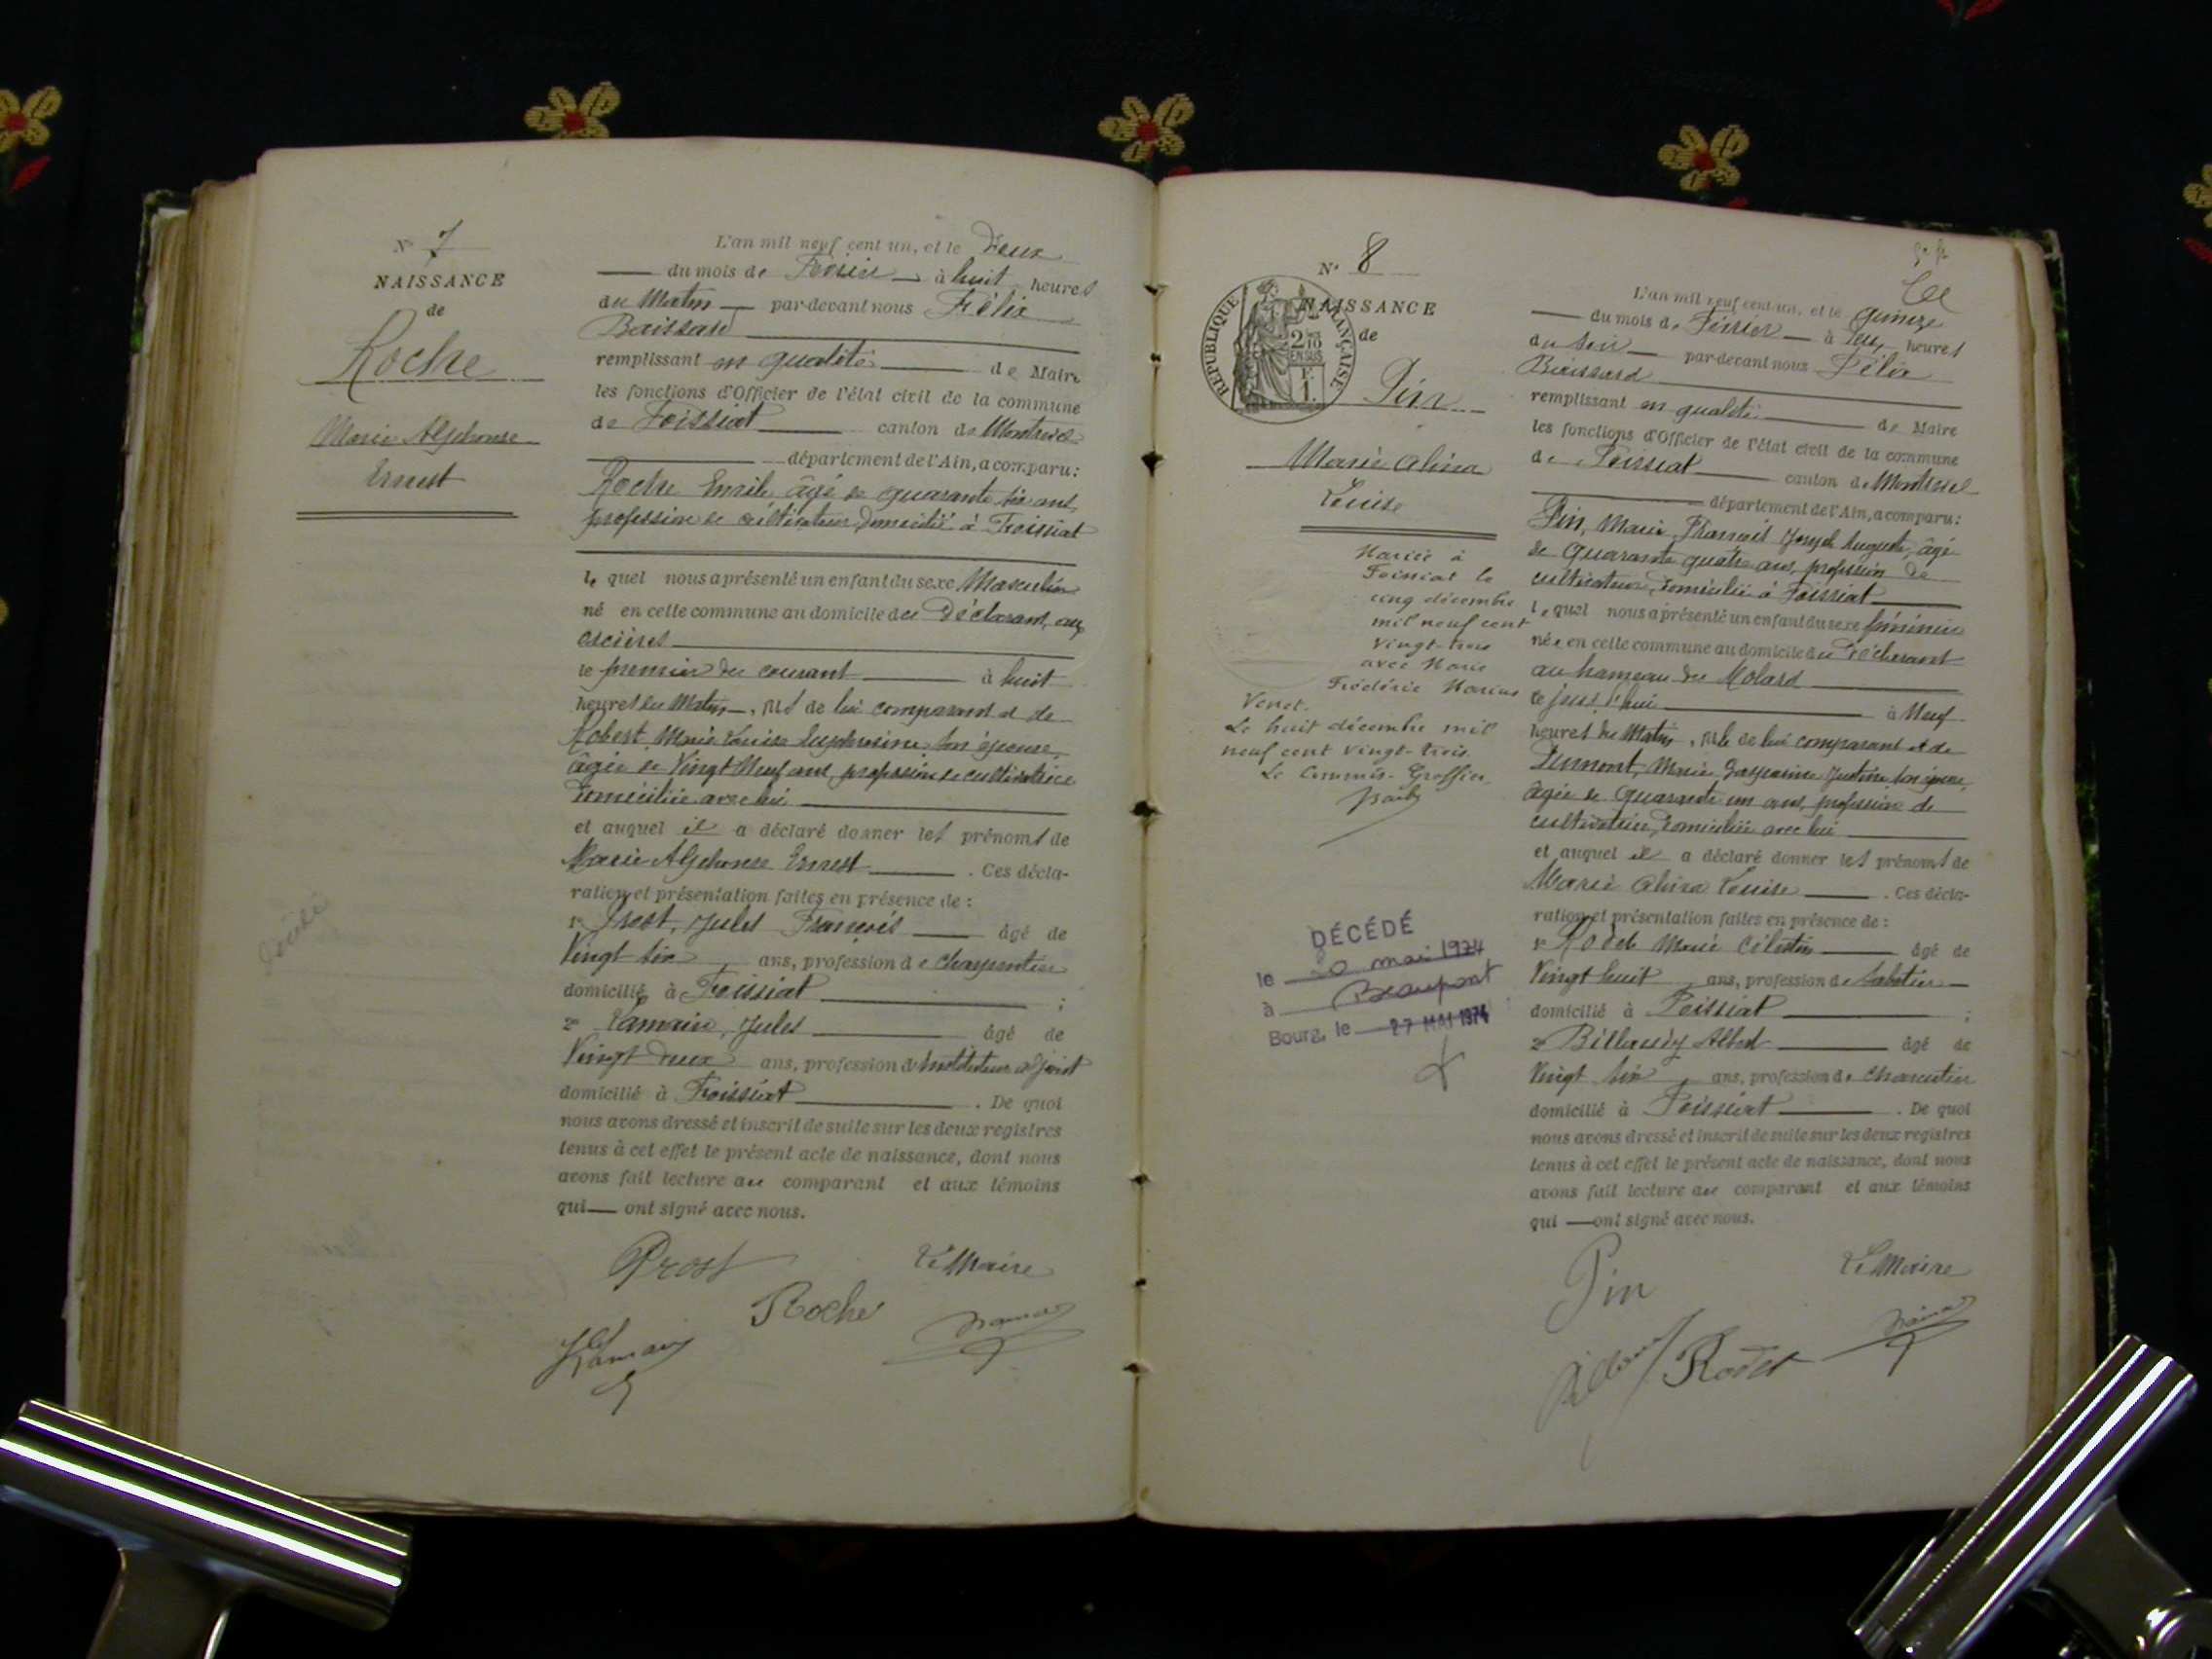 N° 7
NAISSANCE
de
Roche
Marie Alphonse
Ernest
décédé
L'an mil neuf cent un, et le Deux
du mois de Février à huit heures
du Matin par-devant nous Félix
Baissard
remplissant en qualité de Maire
les fonctions d'Officier de l'état civil de la commune
de Foissiat canton de Montrevel
département de l'Ain, a comparu:
Roche Emile âgé de quarante six ans,
profession de cultivateur, domicilié à Foissiat
le quel nous a présenté un enfant du sexe Masculin
né en cette commune au domicile du Déclarant, aux
le premier du courant à huit
heures du Matin, fils de lui comparant et de
Robert Marie Louise Euphrosine son épouse,
âgée de Vingt Neuf ans, profession de cultivatrice
domiciliée avec lui
et auquel il a déclaré donner les prénoms de
Marie Alphonse Ernest. Ces décla-
ration et présentation faites en présence de :
1° Prost, Jules François âgé de
Vingt six ans, profession de Charpentier
domicilié à Foissiat ;
2° Lamain, Jules âgé de
Vingt deux ans, profession d'Instituteur adjoint
domicilié à Foissiat. De quoi
nous avons dressé et inscrit de suite sur les deux registres
tenus à cet effet le présent acte de naissance, dont nous
avons fait lecture au comparant et aux témoins
qui ont signé avec nous.
Prost Le Maire
Roche
N° 8
NAISSANCE
de
RÉPUBLIQUE FRANÇAISE
2/10 EN SUS
F. 1.
Pin
Marie Alina
Louise
Mariée à
Foissiat le
cinq décembre
mil neuf cent
vingt-trois
avec Marie
Frédéric Marius
Venet.
Le huit décembre mil
neuf cent vingt-trois
Le Commis-Greffier
DÉCÉDÉ
le 20 mai 1974
à Beaupont
Bourg, le 27 MAI 1974
L'an mil neuf cent un, et le quinze
du mois de Février à heures
du soir par-devant nous Félix
Baissard
remplissant en qualité de Maire
les fonctions d'Officier de l'état civil de la commune
de Foissiat canton de Montrevel
département de l'Ain, a comparu:
Pin, Marie François Joseph Auguste, âgé
de Quarante quatre ans, profession de
cultivateur, domicilié à Foissiat
le quel nous a présenté un enfant du sexe féminin
née en cette commune au domicile du Déclarant
au hameau du Molard
ce jourd'hui à Neuf
heures du Matin, fille de lui comparant et de
Dumont, Marie Gasparine Justine son épouse,
âgée de Quarante un ans, profession de
cultivatrice, domiciliée avec lui
et auquel il a déclaré donner les prénoms de
Marie Alina Louise. Ces décla-
ration et présentation faites en présence de :
1° Rodet Marie Célestin âgé de
Vingt huit ans, profession de Sabotier
domicilié à Foissiat ;
2° Albert âgé de
Vingt six ans, profession de Charcutier
domicilié à Foissiat. De quoi
nous avons dressé et inscrit de suite sur les deux registres
tenus à cet effet le présent acte de naissance, dont nous
avons fait lecture au comparant et aux témoins
qui ont signé avec nous.
Pin Le Maire
Rodet